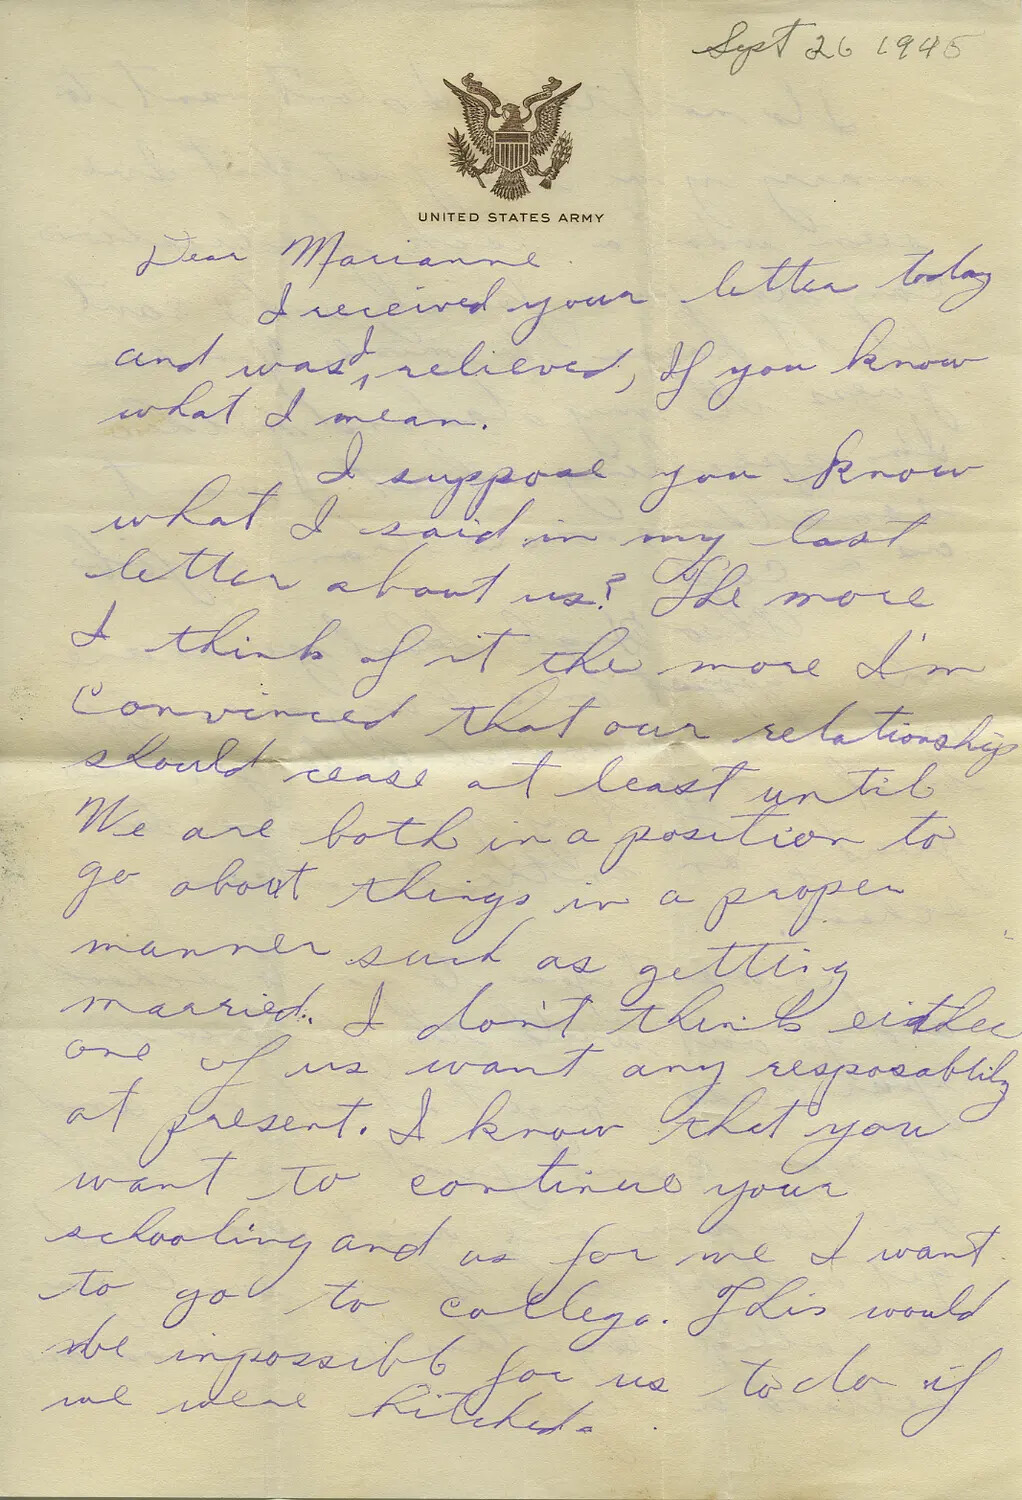 Sept 26 1945
UNITED STATES ARMY
Dear Marianne.
I received your letter today
and was I, relieved, If you know
what I mean.
I suppose you know
what I said in my last
letter about us? The more
I think of it the more I'm
convinced that our relationship
should cease at least until
We are both in a position to
go about things in a proper
manner such as getting
married. I don't think either
one of us want any resposablily
at present. I know that you
want to continue your
schooling and as for me I want
to go to college. This would
be impossibl for us to do if
we were hitched.